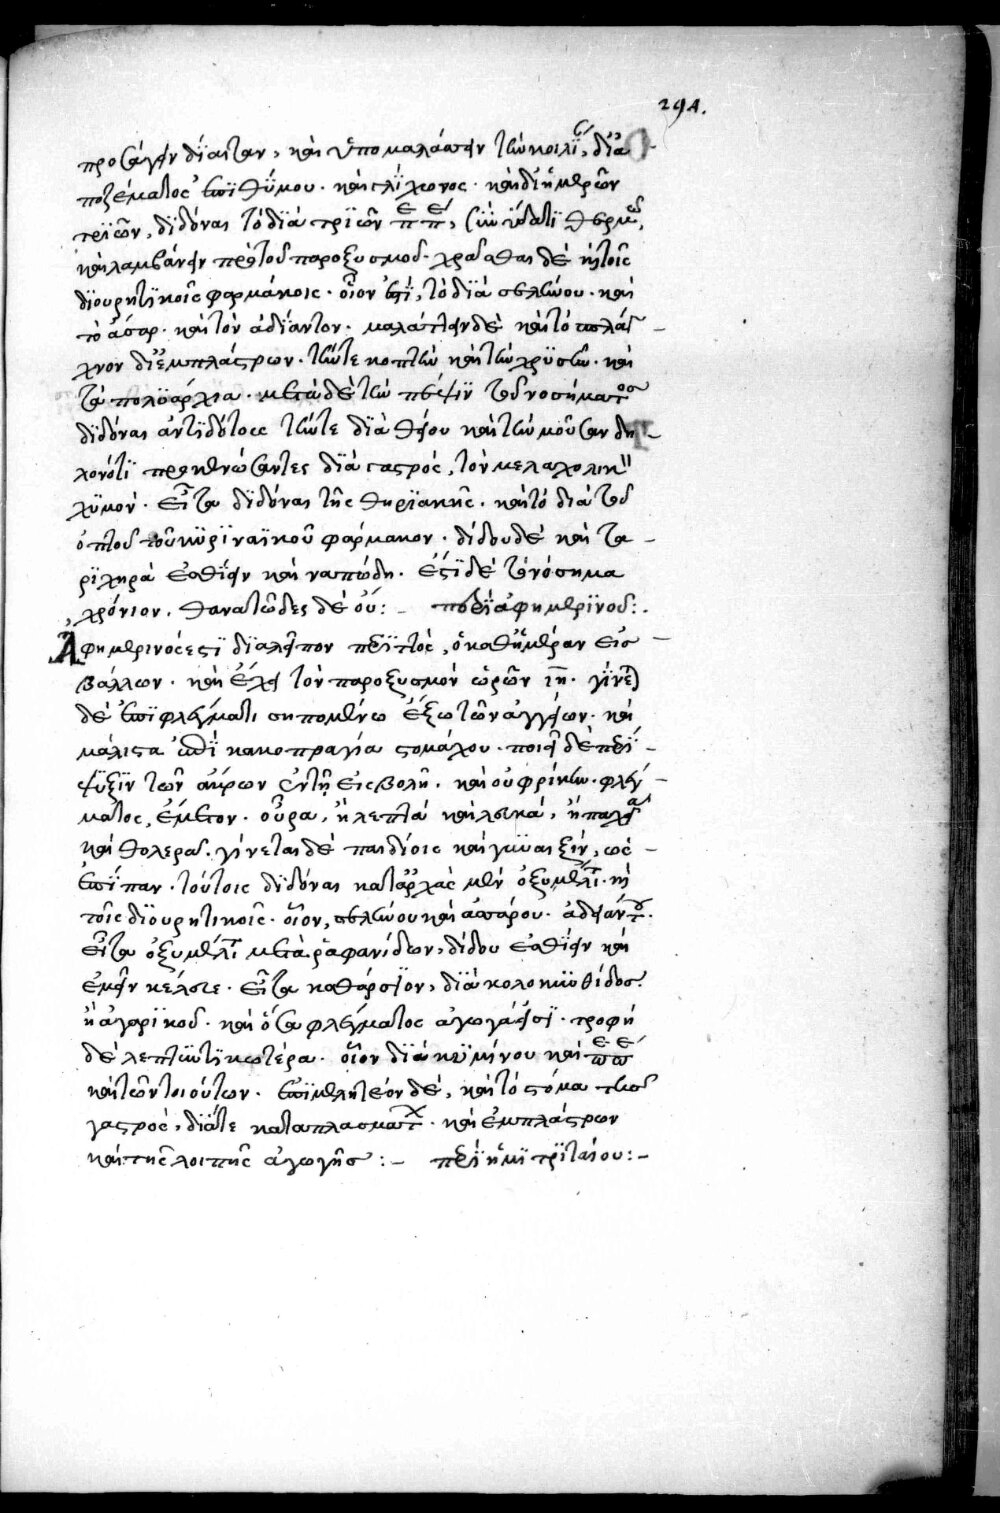 294.
προσάγειν δίαιταν, καὶ ὑπομαλάσσειν τὴν κοιλί, διὰ
ποζέματος ἐπιθύμου. καὶ γλίχωνος. καὶ δι ἡμερῶν
τριῶν, διδόναι τὸ διὰ τριῶν πεπε, σὺν ὕδατι θερμῶ,
καὶ λαμβάνειν πρὸ τοῦ παροξυσμοῦ. χρᾶσθαι δὲ καὶ τοῖς
διουρητικοῖς φαρμάκοις. οἷον ἐστὶ, τὸ διὰ σελίνου. καὶ
τὸ ἄσαρ. καὶ τὸν ἀδίαντον. μαλάττειν δὲ καὶ τὸ σπλάγ
χνον δι ἐμπλάστρων. τήν τε κοπτὴν καὶ τὴν χρυσῆν. καὶ
τὰ πολυάρχια. μετὰ δὲ τὴν πέψιν τοῦ νοσήματος
διδόναι ἀντιδότοις τήν τε διὰ θείου καὶ τὴν μοῦσαν δη
λονότι προκενώσαντες διὰ γαστρός, τὸν μελαχολικὸν
χυμόν. εἶτα διδόναι τῆς θηριακῆς. καὶ τὸ διὰ τοῦ
ὀποῦ τοῦ κυριναϊκοῦ φάρμακον. δίδου δὲ καὶ τα
ριχηρὰ ἐσθίειν καὶ ναπώδη. ἔστι δὲ τὸ νόσημα
χρόνιον. θανατῶδες δὲ οὔ:– περὶ ἀφημερινοῦ:.
Ἀφημερινός ἐστι διαλείπον πυρετὸς, ὁ καθ ἡμέραν εἰσ
βάλλων. καὶ ἔχει τὸν παροξυσμὸν ὡρῶν ιη. γίνεται
δὲ ἐπὶ φλέγματι σηπομένω ἔξω τῶν ἀγγείων. καὶ
μάλιστα ἐπὶ κακοπραγία στομάχου. ποιεῖ δὲ περὶ
ψυξιν τῶν ἄκρων ἐν τῇ εἰσβολῆ. καὶ οὐ φρίκην. φλέγ
ματος, ἔμετον. οὖρα, ἢ λεπτὰ καὶ λευκά, ἢ παχέα
καὶ θολερά. γίνεται δὲ παιδίοις καὶ γυναιξίν, ὡς
ἐπίπαν. τούτοις διδόναι κατ ἀρχὰς μὲν ὀξύμελι. καὶ
τοῖς διουρητικοῖς. οἷον, σελίνου καὶ ἀσάρου. ἀδειάντου.
εἶτα ὀξύμελι μετὰ ῥαφανίδων, δίδου ἐσθίειν καὶ
ἐμεῖν κέλευε. εἶτα καθάρσιον, διὰ κολοκυνθίδος.
ἢ ἀγαρικοῦ. καὶ ὅσα φλέγματος ἀγωγά εἰσι. τροφὴ
δὲ λεπτυντικωτέρα. οἷον διὰ κυμίνου καὶ πεπε
καὶ τῶν τοιούτων. ἐπιμελητέον δὲ, καὶ τὸ στόμα τῆς
γαστρός, διά τε καταπλασμάτων. καὶ ἐμπλάστρων
καὶ τῆς λοιπῆς ἀγωγῆς:– περὶ ἡμιτριταίου:–